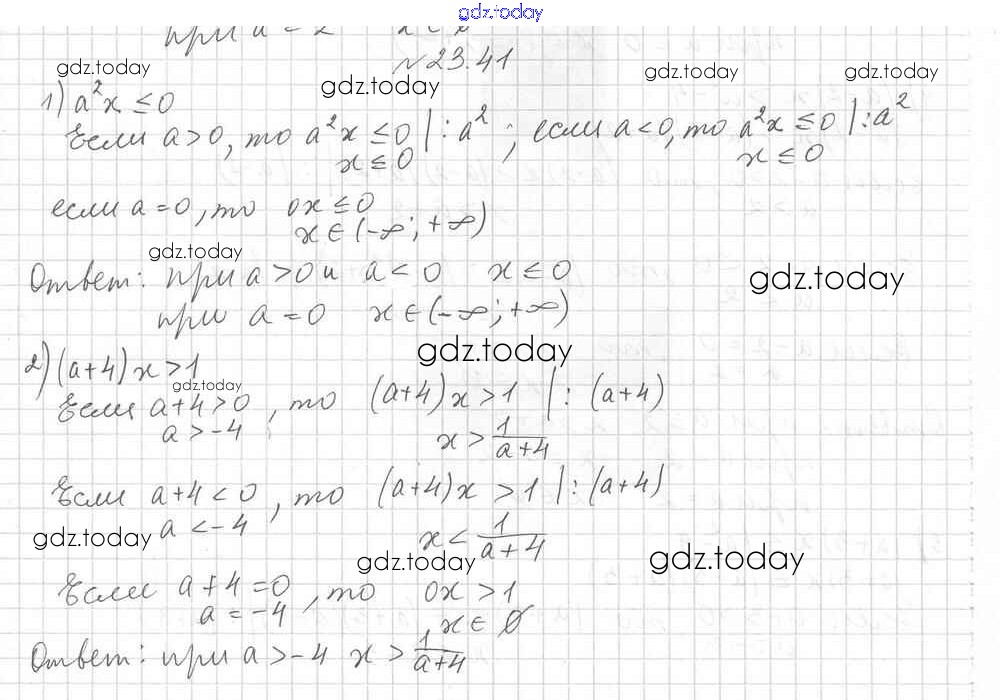 gdz.today
при a = 2
№23.41
gdz.today gdz.today gdz.today gdz.today
1) a²x ≤ 0
Если a > 0, то a²x ≤ 0 | : a² ; если a < 0, то a²x ≤ 0 | : a²
x ≤ 0 x ≤ 0
если a = 0, то 0x ≤ 0
x ∈ (-∞; +∞)
gdz.today
Ответ: при a > 0 и a < 0 x ≤ 0
gdz.today
при a = 0 x ∈ (-∞; +∞)
gdz.today
2) (a+4) x > 1
gdz.today
Если a+4 > 0, то (a+4) x > 1 | : (a+4)
a > -4 x > 1/(a+4)
Если a+4 < 0, то (a+4)x > 1 | : (a+4)
gdz.today a < -4 x < 1/(a+4)
gdz.today gdz.today
Если a+4 = 0, то 0x > 1
a = -4, x ∈ ∅
Ответ: при a > -4 x > 1/(a+4)